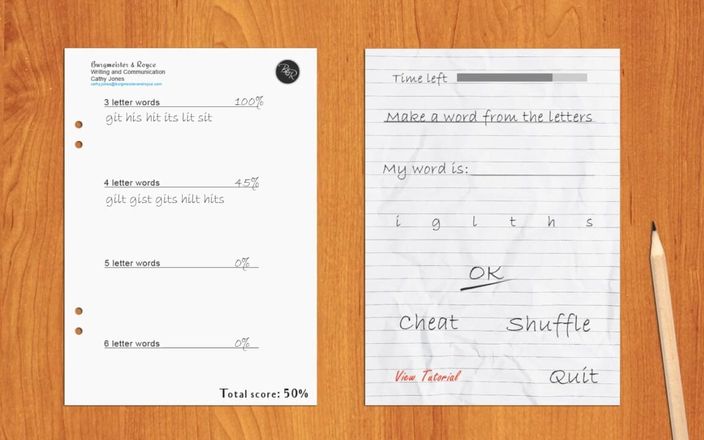 Burgmeister & Royce
Writing and Communication
Cathy Jones
cathy.jones@burgmeisterandroyce.com
B&R
3 letter words 100%
git his hit its lit sit
4 letter words 45%
gilt gist gits hilt hits
5 letter words 0%
6 letter words 0%
Total score: 50%
Time left
Make a word from the letters
My word is:
i g l t h s
OK
Cheat Shuffle
View Tutorial Quit